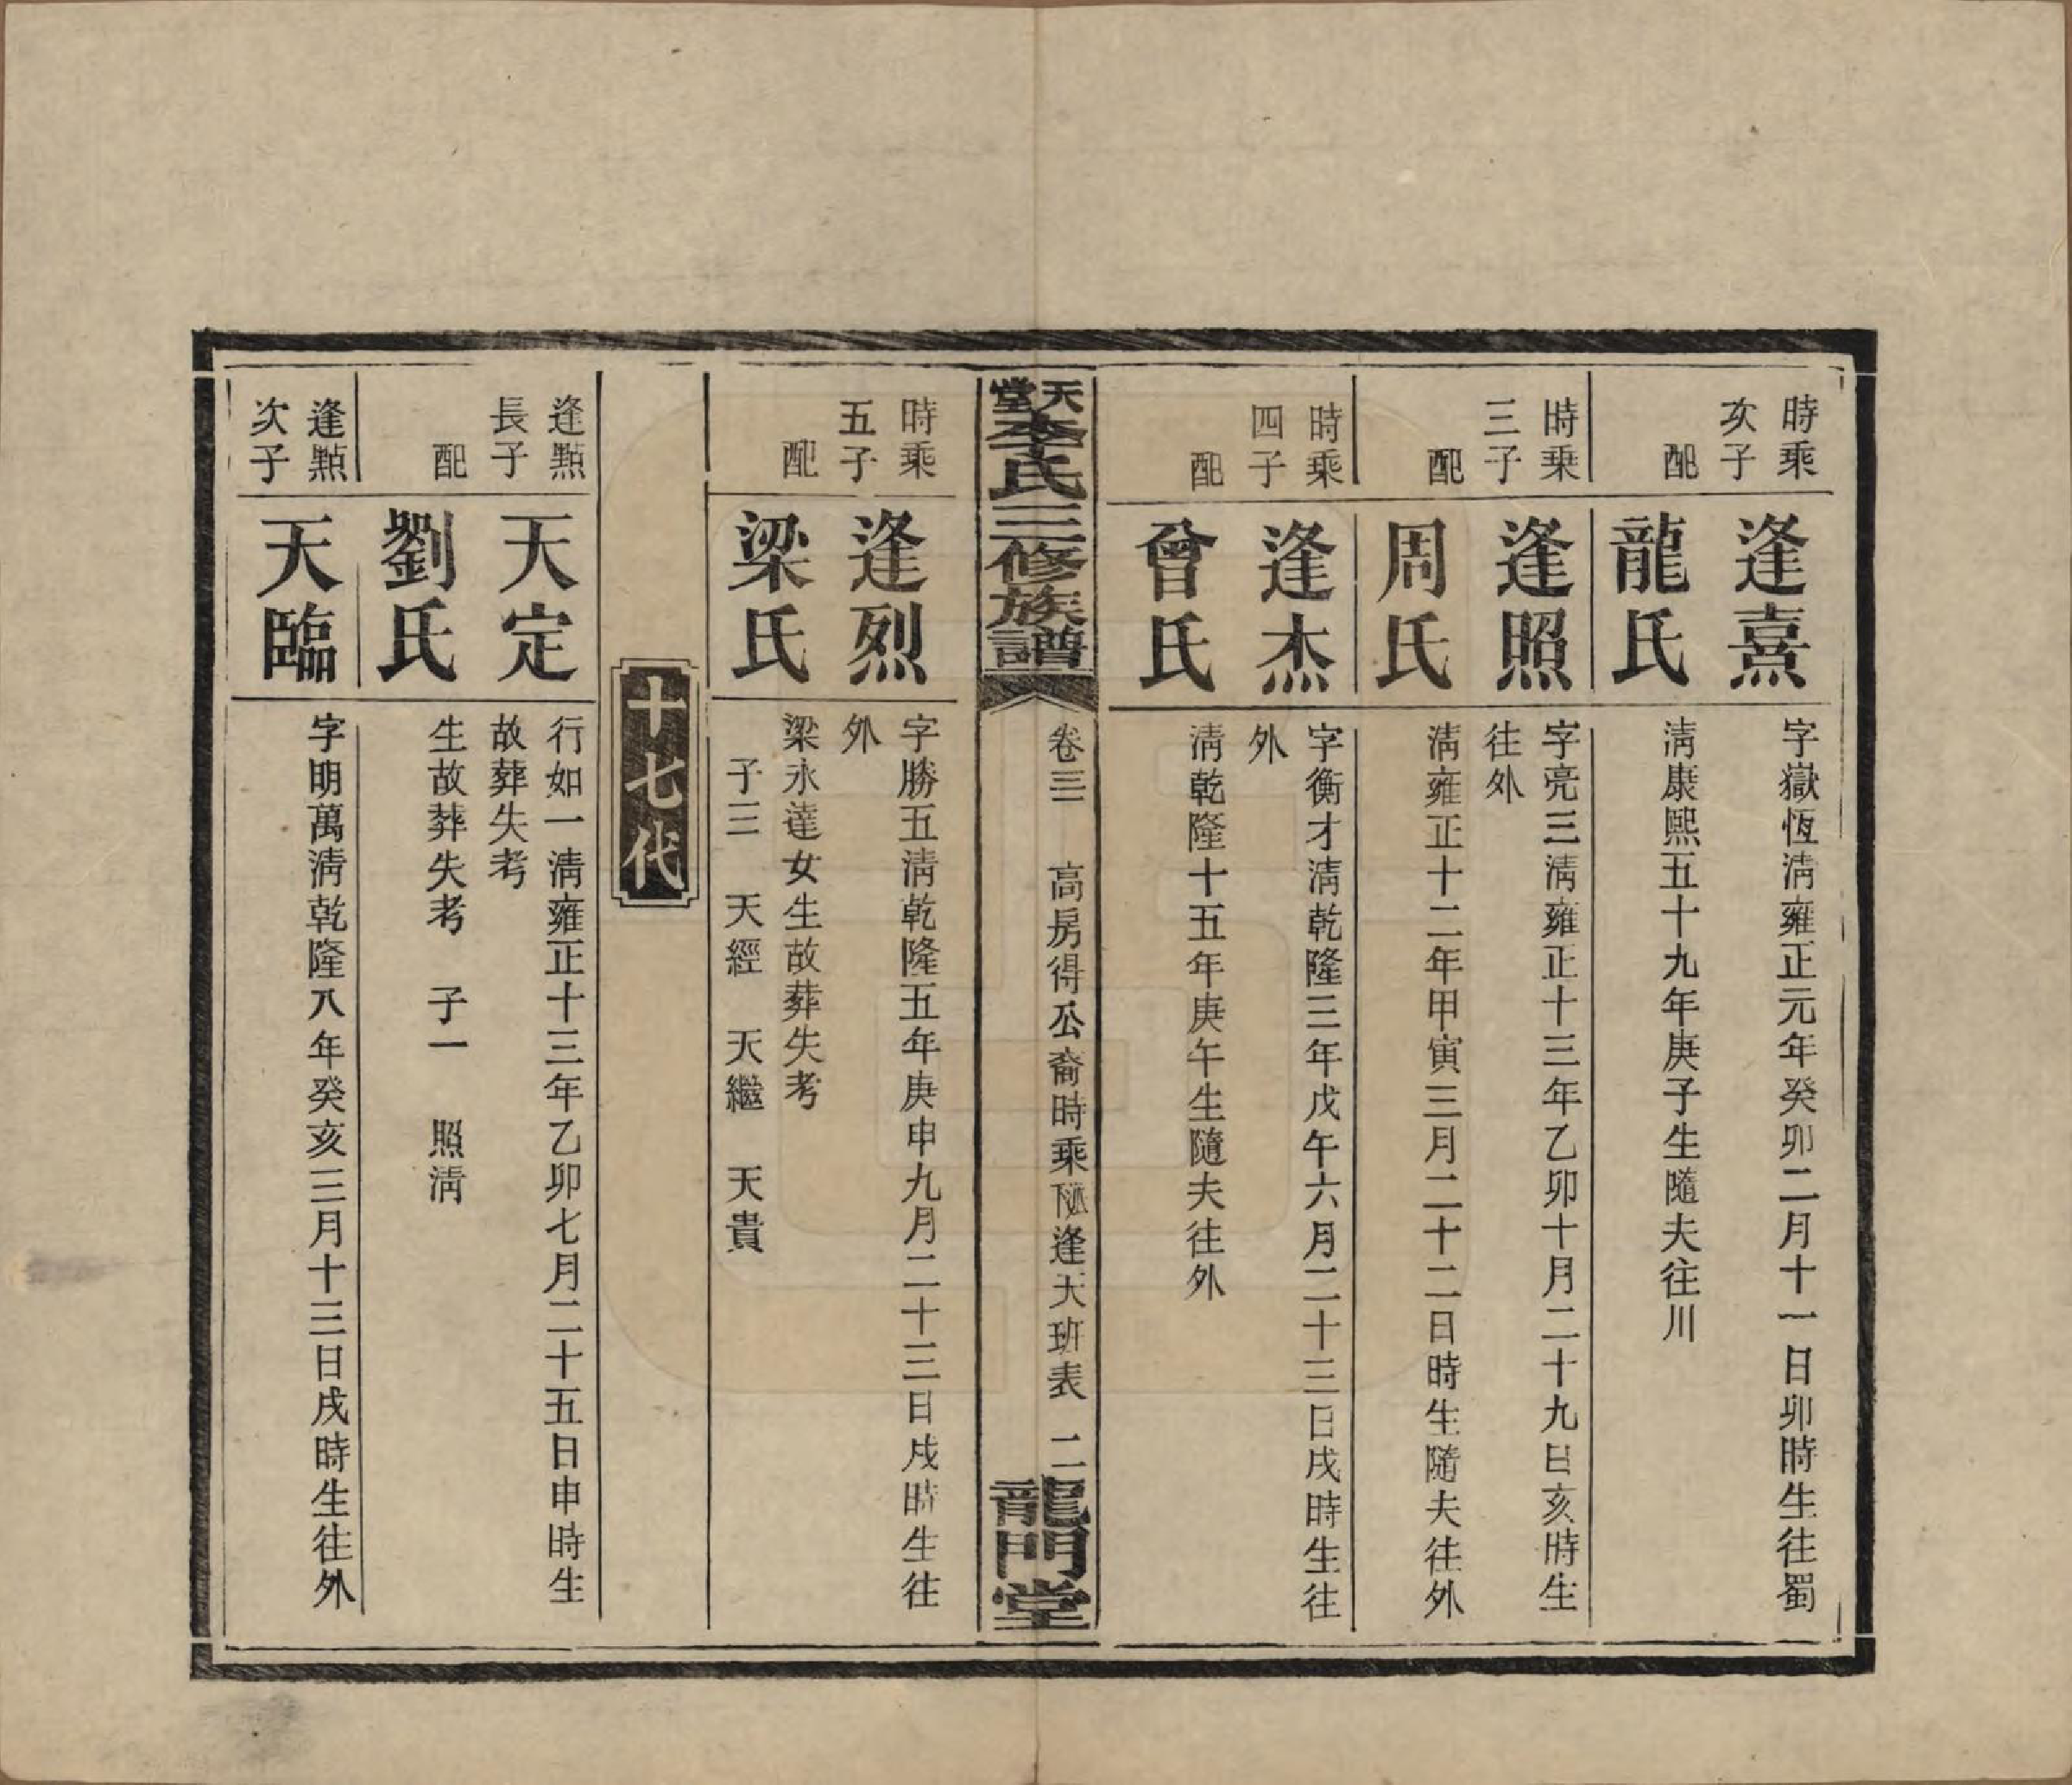 時乘
次子
逢熹
字嶽恆淸雍正元年癸卯二月十一日卯時生往蜀
配
龍氏
淸康熙五十九年庚子生隨夫往川
時乘
三子
逢照
字亮三淸雍正十三年乙卯十月二十九日亥時生
往外
配
周氏
淸雍正十二年甲寅三月二十二日時生隨夫往外
時乘
四子
逢杰
字衡才淸乾隆三年戊午六月二十三日戌時生往
外
配
曾氏
淸乾隆十五年庚午生隨夫往外
天堂李氏三修族譜
卷三 高房得公裔時乘 逢天班表 二
龍門堂
時乘
五子
逢烈
字勝五淸乾隆五年庚申九月二十三日戌時生往
外
配
梁氏
梁永達女生故葬失考
子三 天經 天繼 天貴
十七代
逢點
長子
天定
行如一淸雍正十三年乙卯七月二十五日申時生
故葬失考
配
劉氏
生故葬失考 子一 照淸
逢點
次子
天臨
字明萬淸乾隆八年癸亥三月十三日戌時生往外